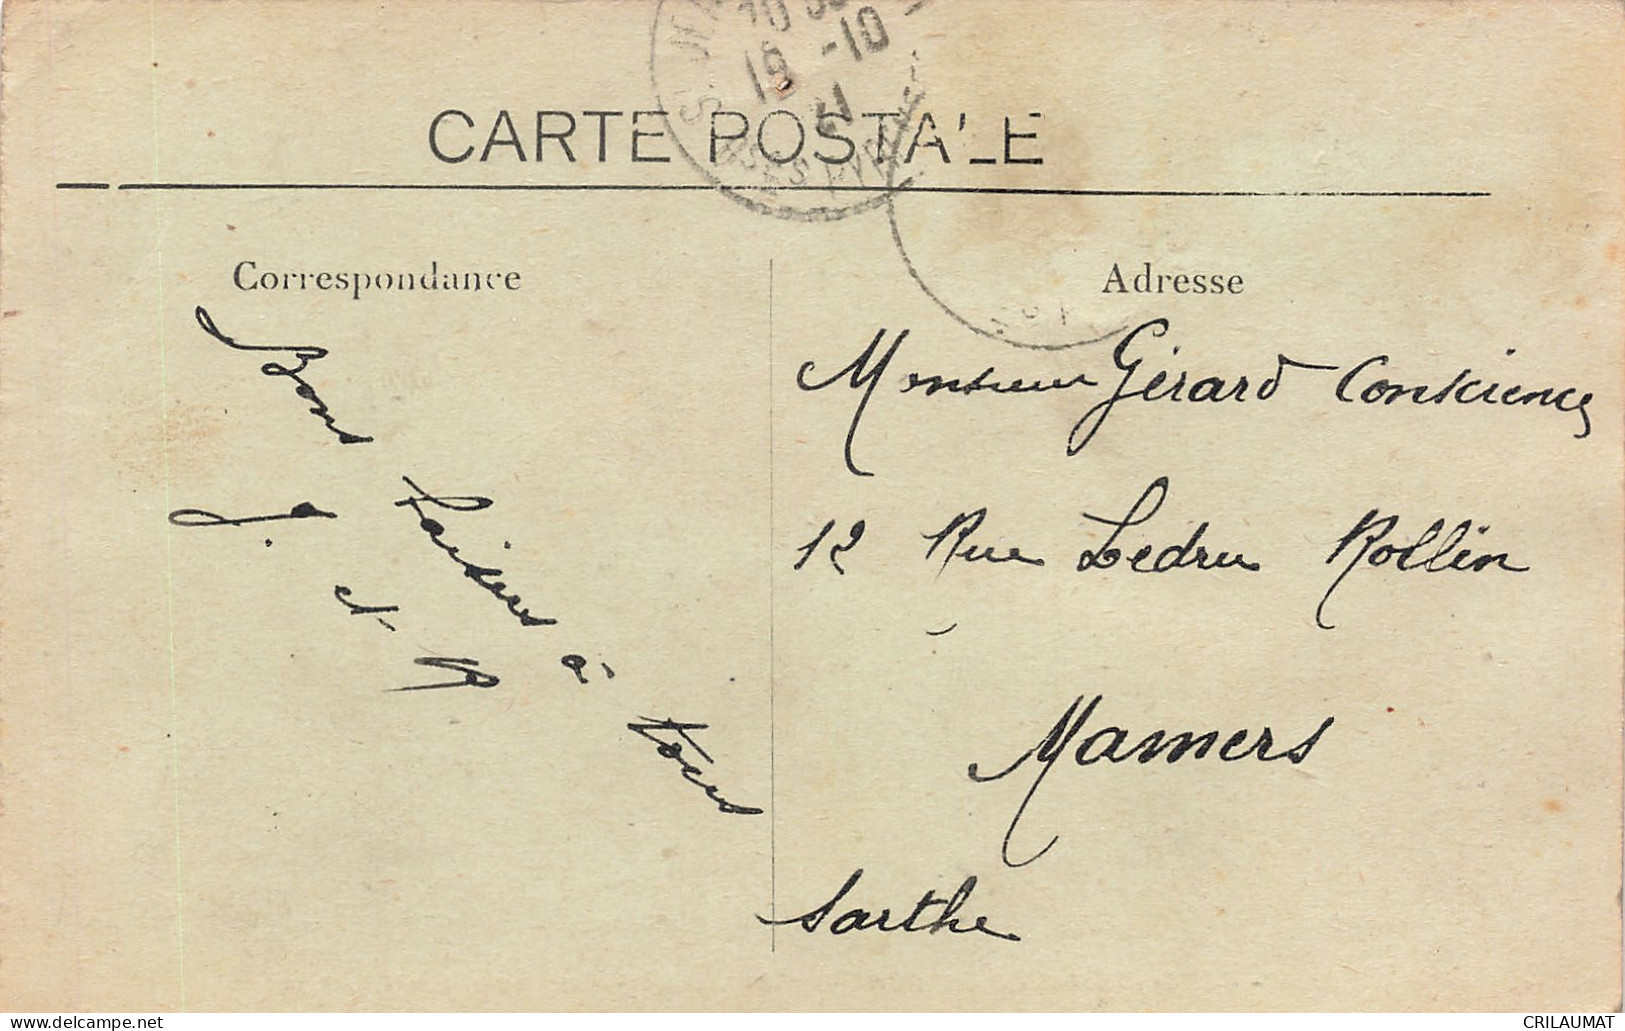 CARTE POSTALE
19 -10
21
Correspondance
Adresse
Bons baisers à tous
J. et
Monsieur Gérard Conscience
12 Rue Ledru Rollin
Mamers
Sarthe
https://www.delcampe.net
CRILAUMAT